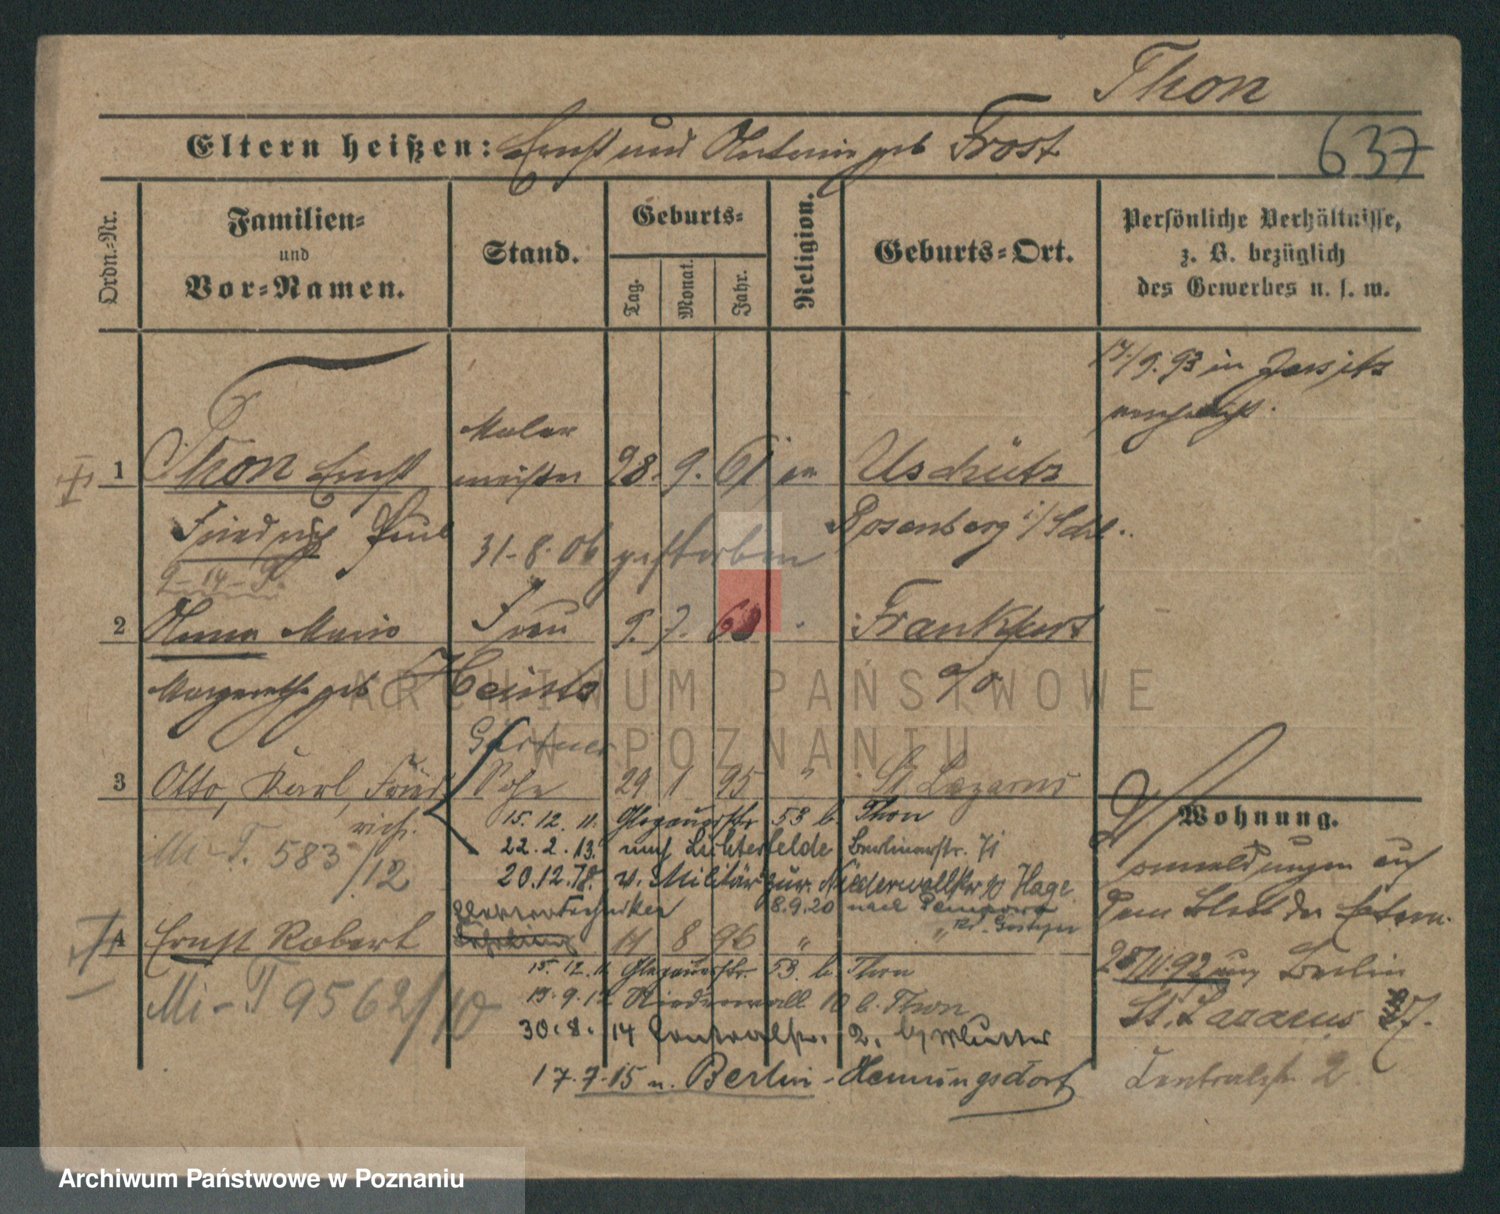 Thon
Eltern heißen: Ernst und geb Frost
637
Ordn.-Nr.
Familien- und Vor-Namen.
Stand.
Geburts-
Tag. Monat. Jahr.
Religion.
Geburts-Ort.
Persönliche Verhältnisse, z. B. bezüglich des Gewerbes u. s. w.
17./9. 93 in Jersitz
Maler
1 Thon Ernst meister 28. 9. 61 Uschütz
Friedrich Paul Rosenberg i/Schl.
31-8-06 gestorben
9-14-9
2 Marie Frau 9. 7. Frankfurt
Margarethe geb Heintz a/o
Gärtner
3 Otto, Karl, Fried Sohn 29 1 95 " St Lazarus
rich.
15. 12. 11. Glogauerstr 53 b. Thon
Wohnung.
Mi-T. 583/12
22. 2. 13. nach Lichterfelde Berlinerstr. 71
20.12.18. v. Militär zur. Niederwallstr 10 Hage
8.9.20 nach
Elektrotechniker
4 Ernst Robert Lehrling 17 8 96 "
15. 12. 11 Glogauerstr. 53. b. Thon
Mi-T 9562/10
Niederwall 10 b. Thon
30.8. 14 Centralstr. 2. b/ Mutter
17.7.15 n. Berlin-Hennungsdorf
auf
dem Blatt der Eltern.
28/11.92 aus Berlin
St. Lazarus
Centralstr. 2
ARCHIWUM PAŃSTWOWE
W POZNANIU
Archiwum Państwowe w Poznaniu